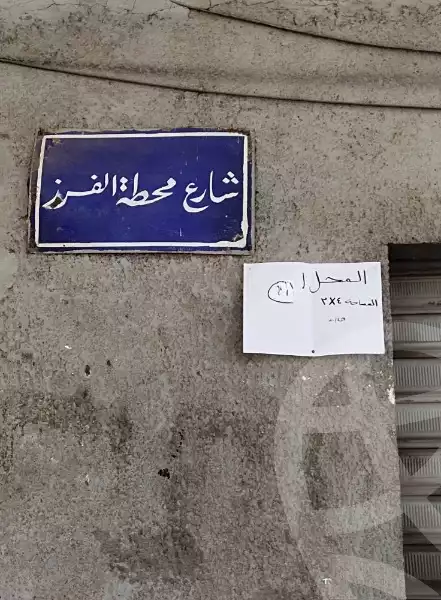 شارع محطة الفرز
المحل
المساحة ٤×٣